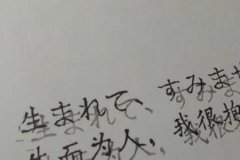 生まれて、すみま
生而为人，我很抱